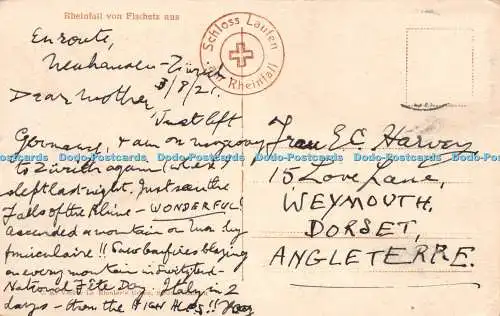 Rheinfall von Fischetz aus
Schloss Laufen
am Rheinfall
En route,
Neuhausen - Zürich
3/8/21.
Dear Mother,
Just left
Germany, & am on my way
to Zurich again (where I
slept last night. Just saw the
Falls of the Rhine - WONDERFUL!
Ascended a mountain on Monday
funiculaire!! Saw bonfires blazing
on every mountain in Switzerland -
National Fête Day. Italy in 2
days - then the HIGH ALPS!!
Frau E.C. Harvey
15 Love Lane,
WEYMOUTH,
DORSET,
ANGLETERRE.
Dodo-Postcards Dodo-Postcards Dodo-Postcards Dodo-Postcards Dodo-Postcards